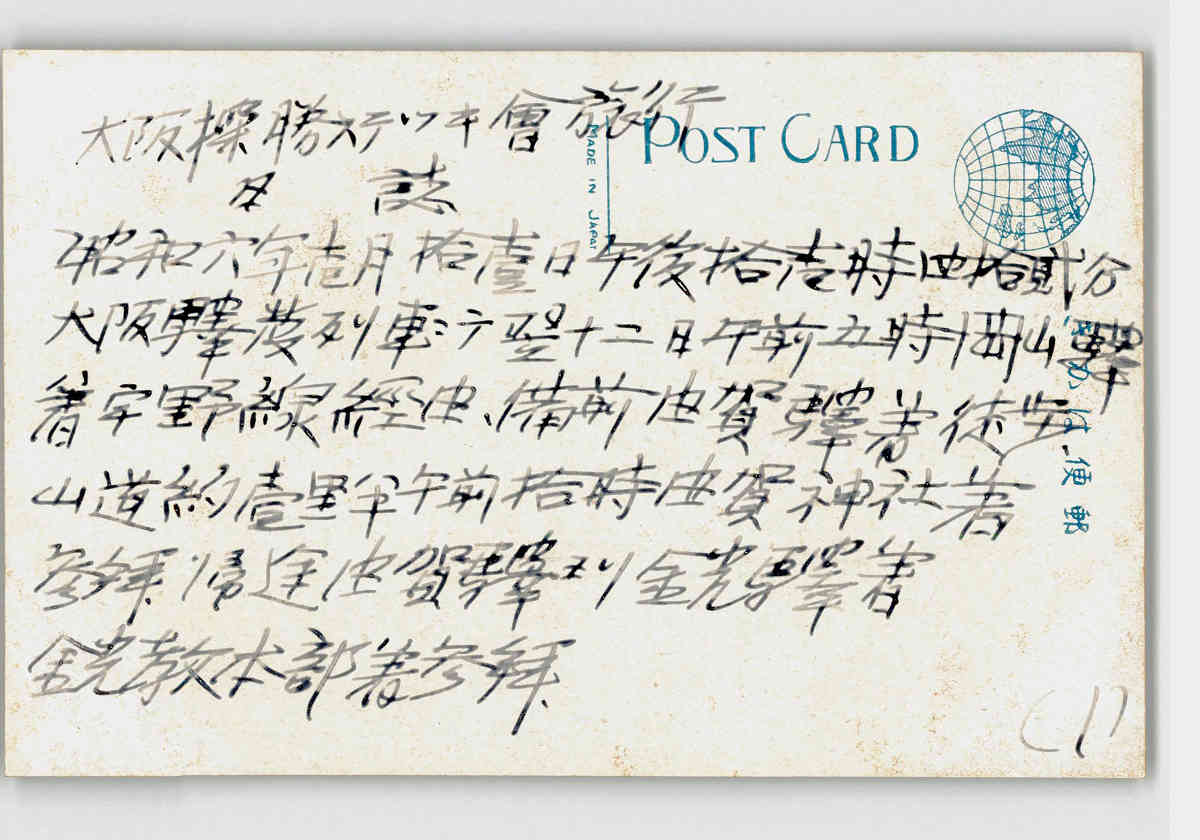 大阪探勝ステツキ會旅行
日誌
昭和六年壱月拾壹日午後拾壱時四拾弐分
大阪驛發列車ニテ翌十二日午前五時岡山驛
着宇野線經由、備前由賀驛着徒歩
山道約壹里半午前拾時由賀神社着
参拜帰途由賀驛ヨリ金光驛着
金光教本部着参拜
(1)
POST CARD
MADE IN JAPAN
郵便はがき